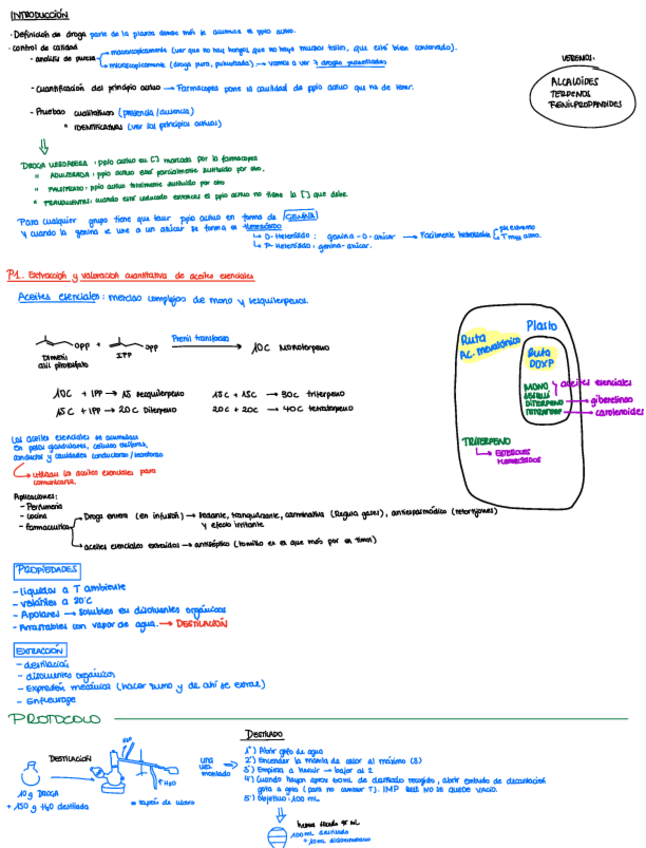 INTRODUCCIÓN
- Definición de droga parte de la planta donde más se acumula el ppio activo.
- control de calidad
- análisis de pureza
macroscópicamente (ver que no hay hongos, que no haya muchos tallos, que esté bien conservado).
microscópicamente (droga pura, pulverizada) → vamos a ver 7 drogas pulverizadas
- Cuantificación del principio activo → Farmacopea pone la cantidad de ppio activo que ha de tener.
- Pruebas cualitativas (presencia/ausencia)
* IDENTIFICATIVAS (ver los principios activos)
VEREMOS:
ALCALOIDES
TERPENOS
FENILPROPANOIDES
DROGA VERDADERA: ppio activo en [] marcada por la farmacopea
" ADULTERADA: ppio activo está parcialmente sustituido por otro.
" FALSIFICADA: ppio activo totalmente sustituido por otro
" FRAUDULENTAS: cuando está caducado entonces el ppio activo no tiene la [] que debe.
Para cualquier grupo tiene que haber ppio activo en forma de GENINA
y cuando la genina se une a un azúcar se forma el heterósido
↳ O-Heterósido: genina-O-azúcar → Fácilmente hidrolizable
pH extremo
T muy altas.
genina-azúcar.
P1. Extracción y valoración cuantitativa de aceites esenciales
Aceites esenciales: mezclas complejas de mono y sesquiterpenos.
OPP + OPP Prenil transferasa → 10C Monoterpeno
Dimetil alil pirofosfato
IPP
10C + IPP → 15 sesquiterpeno
15C + 15C → 30C triterpeno
15C + IPP → 20C Diterpeno
20C + 20C → 40C tetraterpeno
Ruta Ac. Mevalónico
Plasto
Ruta DOXP
MONO
SESQUI
aceites esenciales
DITERPENO → giberelinas
TETRATERP → carotenoides
TRITERPENO
↳ ESTEROLES
Los aceites esenciales se acumulan
en pelos glandulares, células oleíferas,
conductos y cavidades
utilizan los aceites esenciales para
comunicarse.
Aplicaciones:
- Perfumería
- Cocina
- Farmacéutica
Droga entera (en infusión) → sedante, tranquilizante, carminativa (Regula gases), antiespasmódico (retortijones)
y efecto irritante
aceites esenciales extraídos → antiséptico (tomillo es el que más por el timol)
PROPIEDADES
- líquidos a T ambiente
- volátiles a 20°C
- Apolares → solubles en disolventes orgánicos
- Arrastrables con vapor de agua. → DESTILACIÓN
EXTRACCIÓN
- destilación
- disolventes orgánicos
- Expresión mecánica (hacer zumo y de ahí se extrae)
- Enfleurage
PROTOCOLO
10g DROGA
+ 150 g H2O destilada
DESTILACIÓN
H2O
una vez montado →
DESTILADO
1º) Abrir grifo de agua
2º) Encender la manta de calor al máximo (3)
3º) Empieza a hervir → bajar al 2
4º) Cuando hayan aprox 60 mL de destilado recogido, abrir embudo de decantación
gota a gota (para no cambiar T). IMP QUE NO SE QUEDE VACÍO.
5º) Objetivo: 100 mL
100 mL destilado